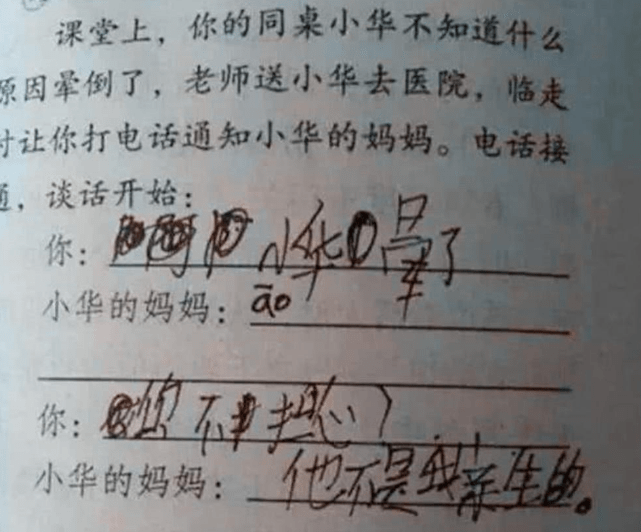 课堂上，你的同桌小华不知道什么
原因晕倒了，老师送小华去医院，临走
时让你打电话通知小华的妈妈。电话接
通，谈话开始：
你：小华晕了
小华的妈妈：āo
你：你不担心？
小华的妈妈：他不是我亲生的。